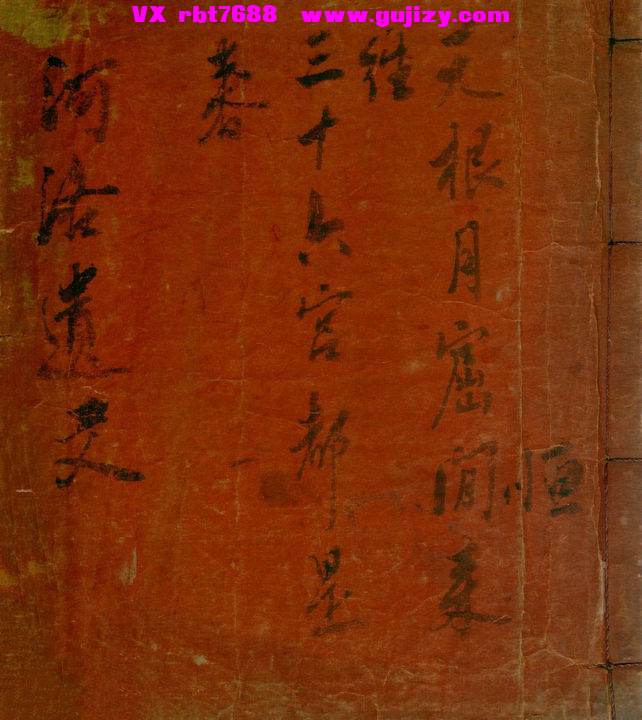 VX rbt7688 www.gujizy.com
恒
天根月窟閒来
往
三十六宮都是
春
河洛遺文